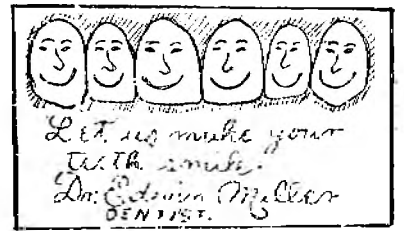 Let us make your
teeth smile.
Dr. Edwin Miller
DENTIST.